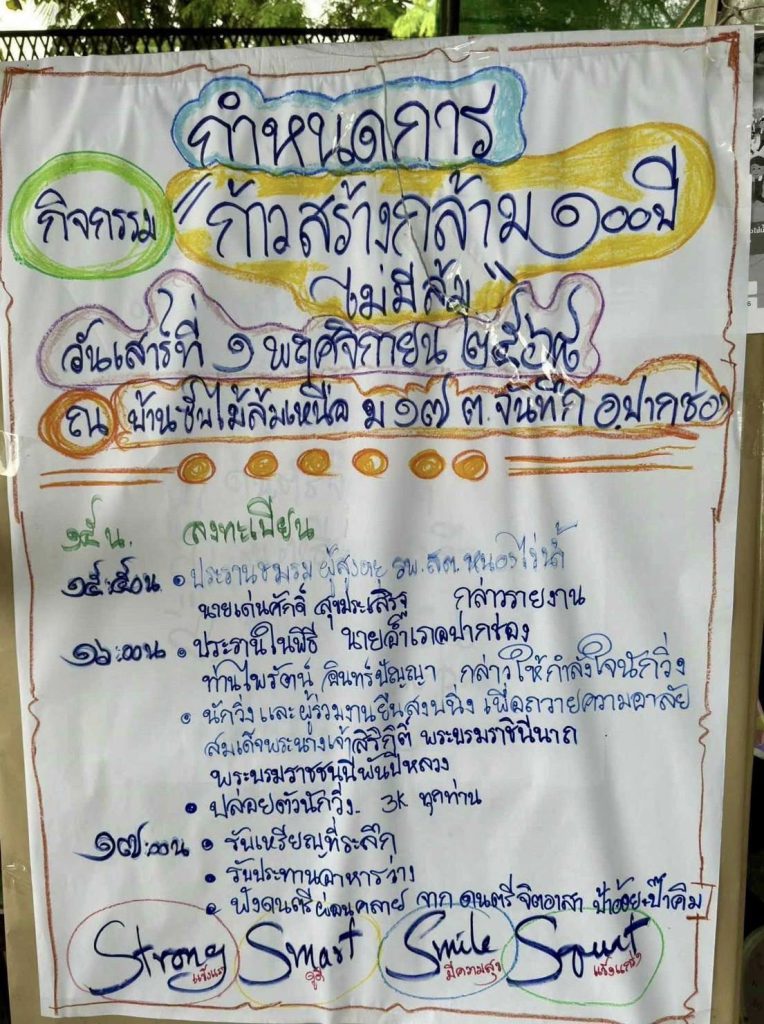 กำหนดการ
กิจกรรม "ก้าวสร้างกล้าม ๑๐๐ปี
ไม่มีล้ม"
วันเสาร์ที่ ๑ พฤศจิกายน ๒๕๖๘
ณ บ้านซับไม้ส้มเหนือ ม ๑๗ ต.จันทึก อ.ปากช่อง
๑๕ น. ลงทะเบียน
๑๕:๕๐น • ประธานชมรมผู้สูงอายุ รพ.สต.หนองไร่น้ำ
นายเด่นศักดิ์ สุขประเสริฐ กล่าวรายงาน
๑๖:๐๐น • ประธานในพิธี นายอำเภอปากช่อง
ท่านไพรัตน์ อินทร์ปัญญา กล่าวให้กำลังใจนักวิ่ง
• นักวิ่งและผู้ร่วมงานยืนสงบนิ่ง เพื่อถวายความอาลัย
สมเด็จพระนางเจ้าสิริกิติ์ พระบรมราชินีนาถ
พระบรมราชชนนีพันปีหลวง
• ปล่อยตัวนักวิ่ง 3K ทุกท่าน
๑๗:๐๐น • รับเหรียญที่ระลึก
• รับประทานอาหารว่าง
• ฟังดนตรีผ่อนคลาย จากดนตรีจิตอาสา ป้าอ้อย+ป๊าคิม
Strong Smart Smile
แข็งแรง มีความสุข แข็งแกร่ง